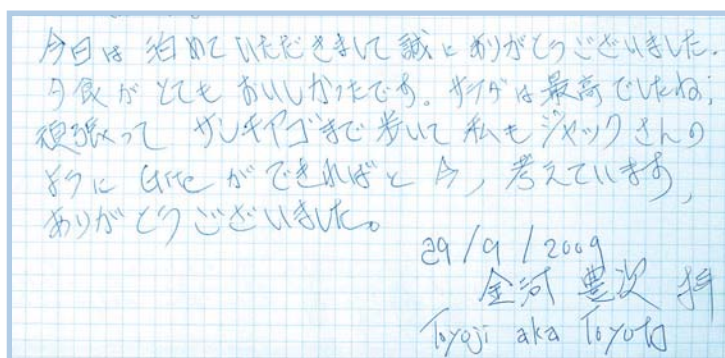 今日は 泊めて いただきまして 誠に ありがとうございました.
夕食が とても おいしかったです。 サイダは 最高でしたね.
頑張って サンチャゴまで 歩いて 私も ジャックさんの
ように Gite が できればと 今, 考えています,
ありがとうございました。
29/9/2009
金河 豊次
Toyoji aka Toyota